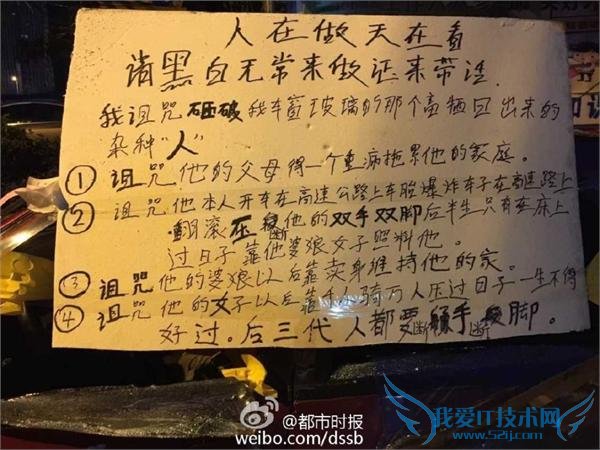 人在做天在看
请黑白无常来做证来带话
我诅咒砸破我车窗玻璃的那个畜牲日出来的
杂种"人"
① 诅咒他的父母得一个重病拖累他的家庭。
② 诅咒他本人开车在高速公路上车胎爆炸车子在高速路上
翻滚压断他的双手双脚后半生只有在床上
过日子靠他婆娘女子照料他。
③ 诅咒他的婆娘以后靠卖身维持他的家。
④ 诅咒他的女子以后靠千人骑万人压过日子一生不得
好过。后三代人都要断手断脚。
@都市时报
weibo.com/dssb
我爱IT技术网
www.52ij.com